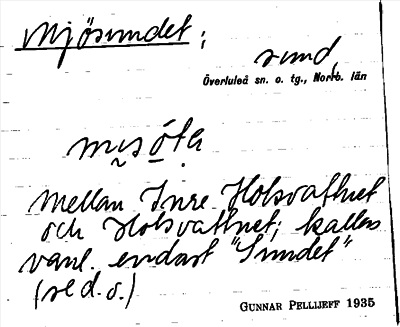 Mjösundet;
sund,
Överluleå sn. o. tg., Norrb. län
mellan Inre Holsvattnet
och Holsvattnet; kallas
vanl. endast "Sundet"
(se d. o.)
GUNNAR PELLIJEFF 1935